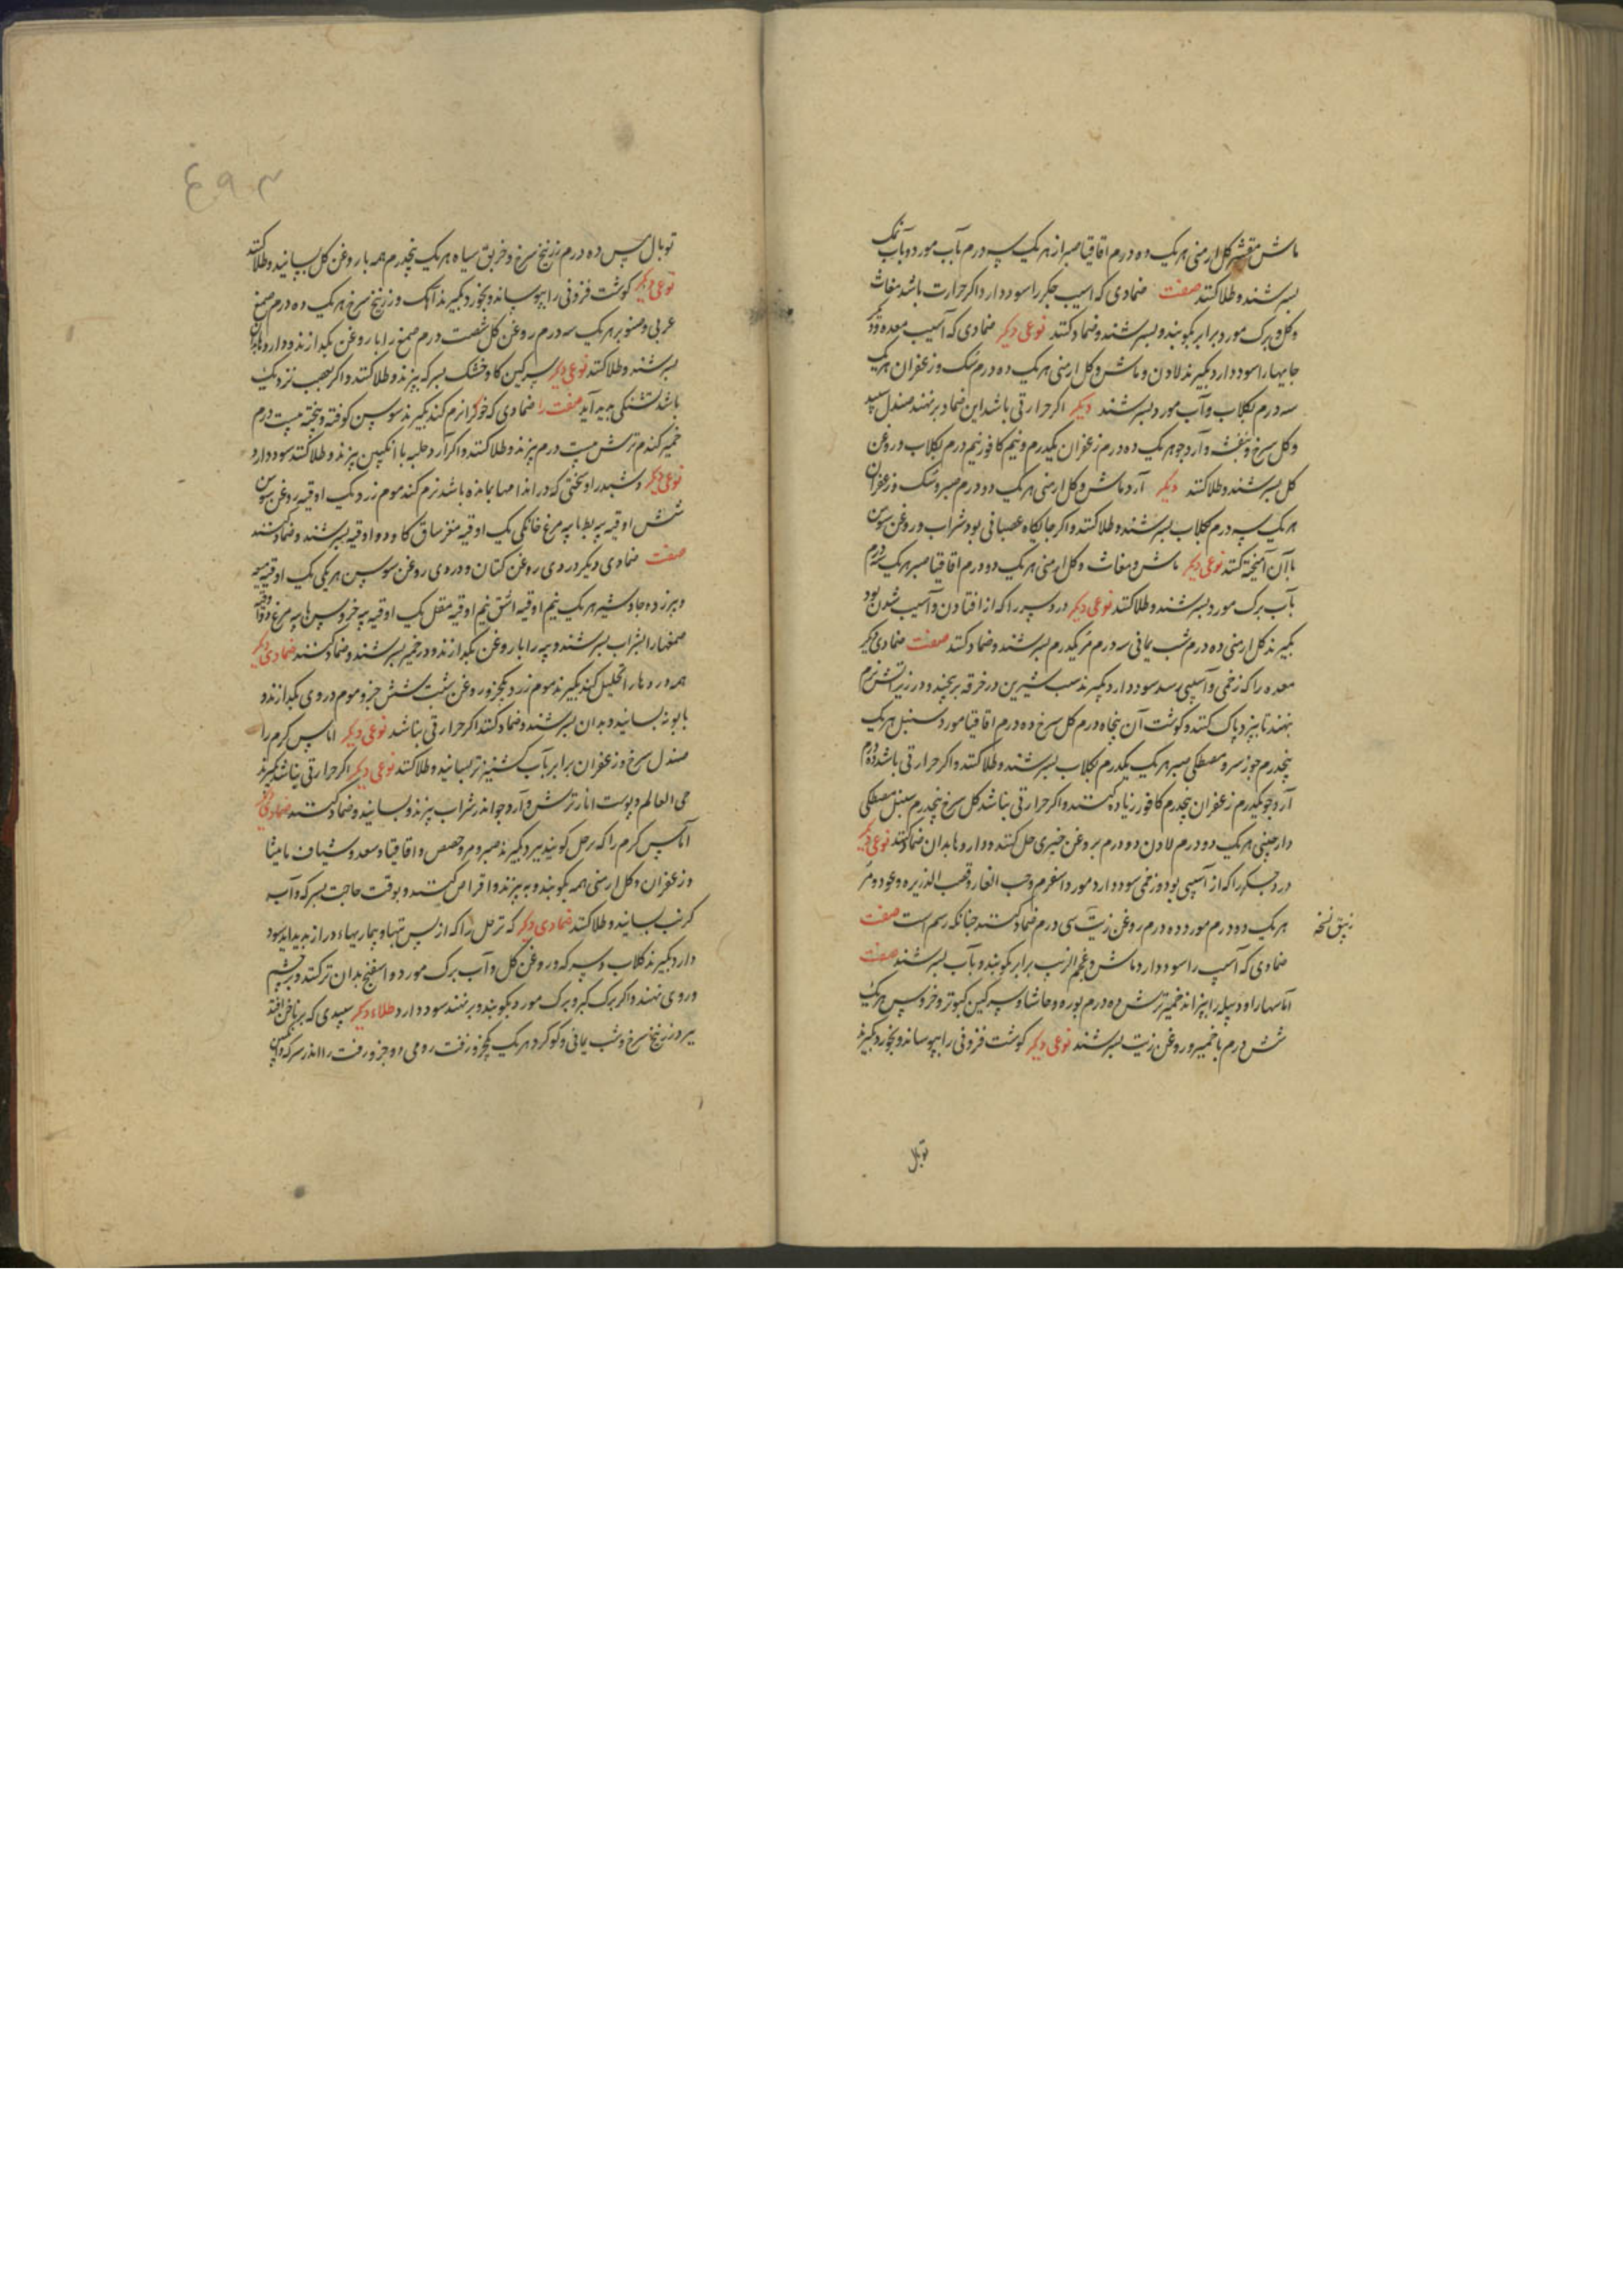 ماش مقشر کل ارمنی هر یک ده درم اقاقیا صبر از هر یک سه درم بآب مورد و بآب نمک
بسرشند و طلا کنند صفت ضمادی که اسیب جکر را سود دارد و اکر حرارت باشد مغاث
و کل و برک مورد برابر بکوبند و بسرشند و ضماد کنند نوعی دیکر ضمادی که آسیب معده و
جایها را سود دارد بکیرند لادن و ماش و کل ارمنی هر یک ده درم سک و زعفران هر یک
سه درم بکلاب و آب مورد بسرشند دیکر اکر حرارتی باشد این ضماد برنهند صندل سپید
و کل سرخ و بنفشه و آرد جو هر یک ده درم زعفران یکدرم و نیم کافور نیم درم بکلاب و روغن
کل بسرشند و طلا کنند دیکر آرد ماش و کل ارمنی هر یک دو درم صبر و سک و زعفران
هر یک سه درم بکلاب بسرشند و طلا کنند و اکر جایکاه عصبانی بود شراب و روغن سوسن
با آن آمیخته کنند نوعی دیکر ماش و مغاث و کل ارمنی هر یک دو درم اقاقیا صبر هر یک سه درم
بآب برک مورد بسرشند و طلا کنند نوعی دیکر درد سر را که از افتادن و آسیب شدن بود
بکیرند کل ارمنی ده درم شب یمانی سه درم مر یکدرم بسرشند و ضماد کنند صفت ضمادی دیکر
معده را که زخمی و آسیبی رسد سود دارد بکیرند سیب شیرین در خرقه بپیچند و در زیر آتش نرم
بنهند تا بپزد و پاک کنند و کوشت آن پنجاه درم کل سرخ ده درم اقاقیا مورد سنبل هر یک
پنجدرم جوز سرو مصطکی صبر هر یک یکدرم بکلاب بسرشند و طلا کنند و اکر حرارتی باشد
آرد جو یکدرم زعفران پنجدرم کافور زیاده کنند و اکر حرارتی نباشد کل سرخ پنجدرم سنبل مصطکی
دارچینی هر یک دو درم لادن دو درم بروغن خیری حل کنند و داروها بدان ضماد کنند نوعی دیکر
درد جکر را که از آسیبی بود و زخمی سود دارد مورد اسفرم و حب الغار و قصب الذریره و عود و مر
هر یک دو درم مورد ده درم روغن زیت سی درم ضماد کنند چنانکه رسم است صفت
زیبق نسخه
ضمادی که آسیب را سود دارد ماش و عجم الزبیب برابر بکوبند و بآب بسرشند صفت
آماسها را و دبیله را بپزاند خمیر ترش ده درم بوره و حاشا و سرکین کبوتر و خروس هر یک
شش درم با خمیر و روغن زیت بسرشند نوعی دیکر کوشت فزونی را بپوساند و بخورد بکیرند
توبال
۴۹۳
توبال مس ده درم زرنیخ سرخ و خربق سیاه هر یک پنجدرم همه با روغن کل بسایند و طلا کنند
نوعی دیکر کوشت فزونی را بپوساند و بخورد بکیرند آهک و زرنیخ سرخ هر یک ده درم صمغ
عربی و صنوبر هر یک سه درم روغن کل شصت درم صمغ را با روغن بکدازند و داروها بدان
بسرشند و طلا کنند نوعی دیکر سرکین کاو خشک بسرکه بپزند و طلا کنند و اکر بعصب نزدیک
باشد تشنکی پدید آید صفت ضمادی که خوکرا نرم کند بکیرند سوسن کوفته و پخته بیست درم
خمیر کندم ترش بیست درم بپزند و طلا کنند و اکر آرد حلبه با انکبین بپزند و طلا کنند سود دارد
نوعی دیکر و سختی که در اندامها بمانده باشد نرم کند موم زرد یک اوقیه روغن سوسن
شش اوقیه پیه بط یا پیه مرغ خانکی یک اوقیه مغز ساق کاو دو اوقیه بسرشند و ضماد کنند
صفت ضمادی دیکر دردی روغن کتان و دردی روغن سوسن هر یکی یک اوقیه میعه
و بیرزد و جاوشیر هر یک نیم اوقیه اشق نیم اوقیه مقل یک اوقیه پیه خروس یا پیه مرغ دو اوقیه
صمغها را بشراب بسرشند و پیه را با روغن بکدازند و در خمیر بسرشند و ضماد کنند ضمادی دیکر
همه دردها را تحلیل کند بکیرند موم زرد یکجزو روغن شبت شش جزو موم در وی بکدازند و
بابونه بسایند و بدان بسرشند و ضماد کنند اکر حرارتی نباشد نوعی دیکر آماس کرم را
صندل سرخ و زعفران برابر بآب کشنیز تر بسایند و طلا کنند نوعی دیکر اکر حرارتی نباشد بکیرند
حی العالم و پوست انار ترش و آرد جو اندر شراب بپزند و بسایند و ضماد کنند ضمادی دیکر
آماس کرم را که برحل کوبند ببرد بکیرند صبر و مر و حضض و اقاقیا و سعد و شیاف مامیثا
و زعفران و کل ارمنی همه بکوبند و بپزند و اقراص کنند و بوقت حاجت بسرکه و آب
کرنب بسایند و طلا کنند ضمادی دیکر که ترهل را که از پس تبها و بیماریهاء دراز پدید آید سود
دارد بکیرند کلاب و سرکه و روغن کل و آب برک مورد و اسفنج بدان تر کنند و بر چشم
و روی نهند و اکر برک کبر و برک مورد بکوبند و برنهند سود دارد طلاء دیکر سپیدی که بر ناخن افتد
ببرد زرنیخ سرخ و شب یمانی و کوکرد هر یک یکجزو زفت رومی ده جزو زفت را اندر سرکه